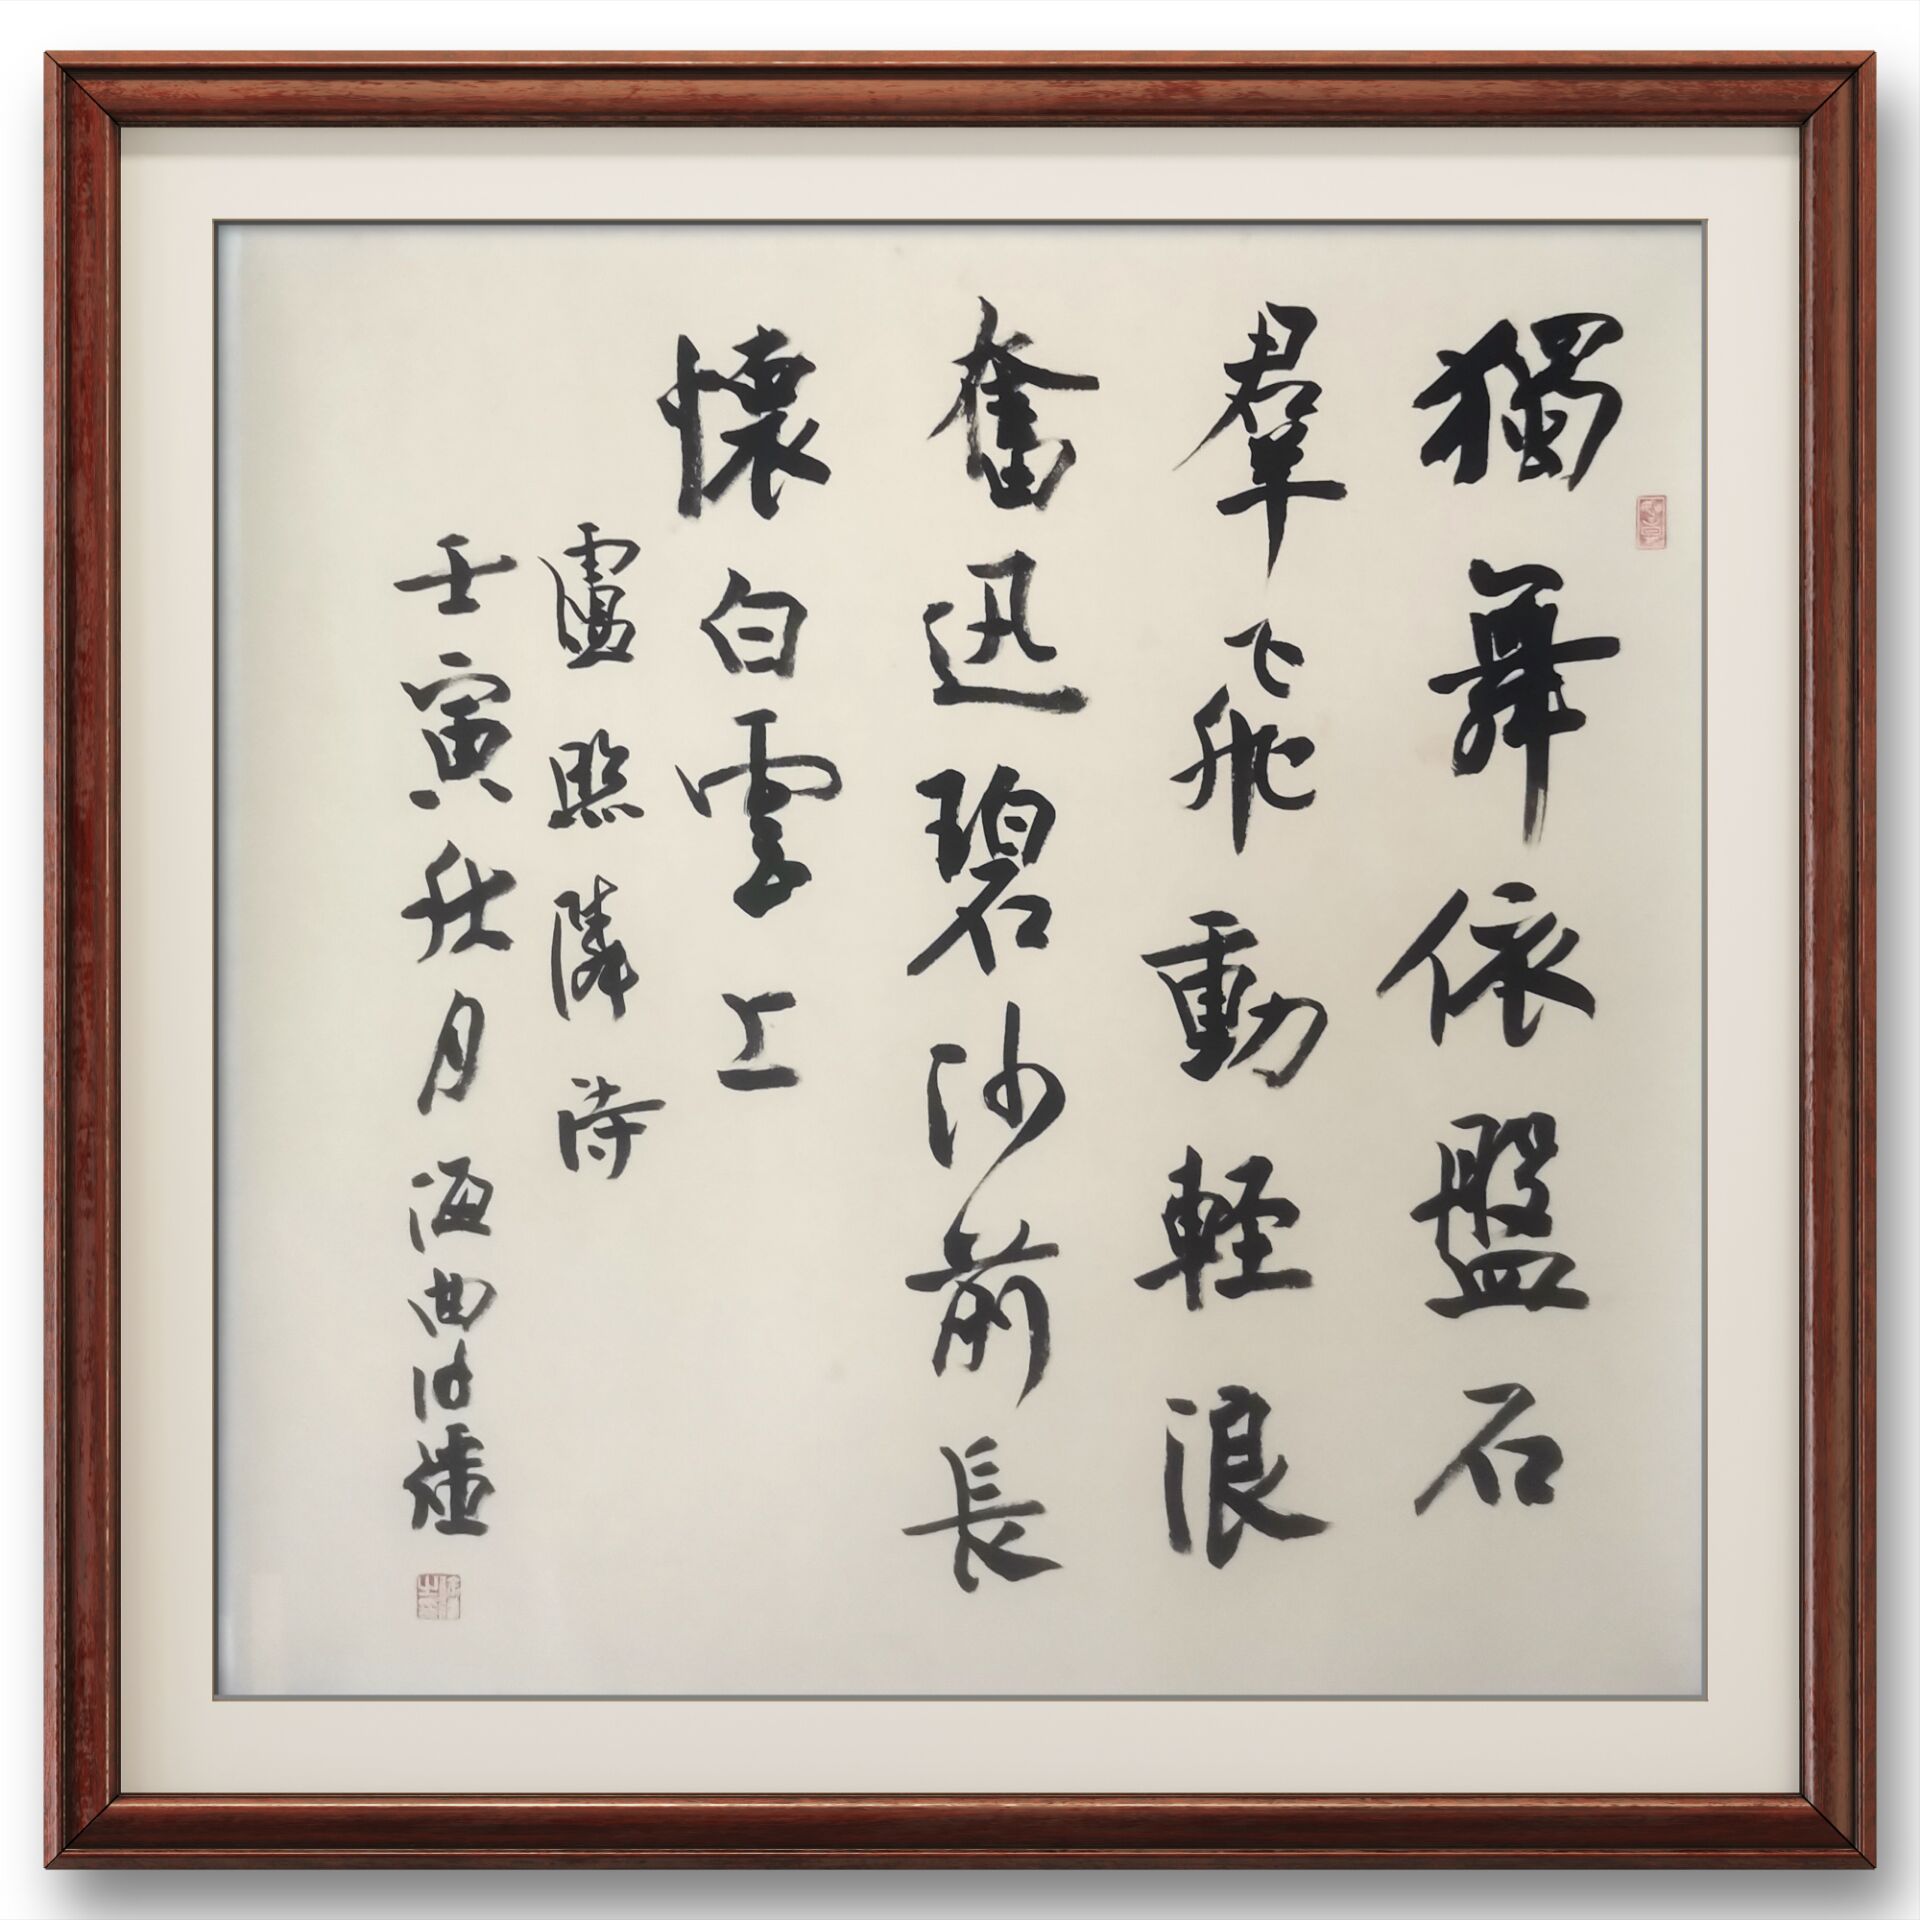 獨舞依盤石
羣飛動輕浪
奮迅碧沙前長
懷白雲上
盧照隣詩
壬寅秋月海曲